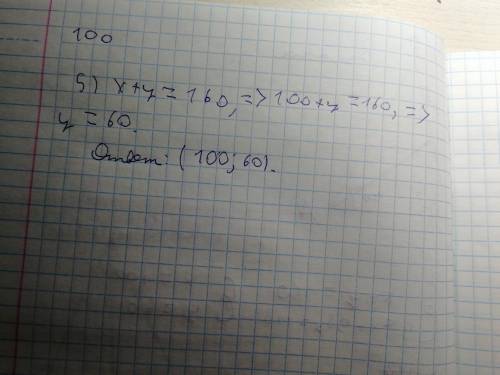 100
5) x+y=160, => 100+y=160, =>
y = 60.
Ответ: (100; 60).